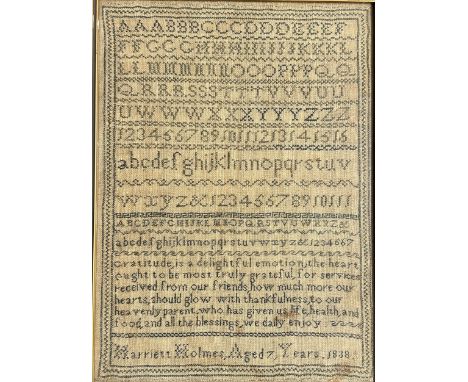 AAABBBCCCDDDEEEF
FFGGGHHHIIIJJJKKKL
LLMMMNNNOOOPPPQQ
QRRRSSSTTTVVVUU
UWWWXXXYYYZZZ
12345678910111213141516
abcdefghijklmnopqrstuv
wxyz&1234567891011
ABCDEFGHIJKLMNOPQRSTUVWXYZ&
abcdefghijklmnopqrstuvwxyz&1234567
Gratitude, is a delightful emotion, the heart
ought to be most truly grateful, for services
received from our friends, how much more our
hearts, should glow with thankfulness, to our
heavenly parent, who has given us life, health, and
food, and all the blessings, we daily enjoy
Harriett Holmes, Aged 7, Years, 1838